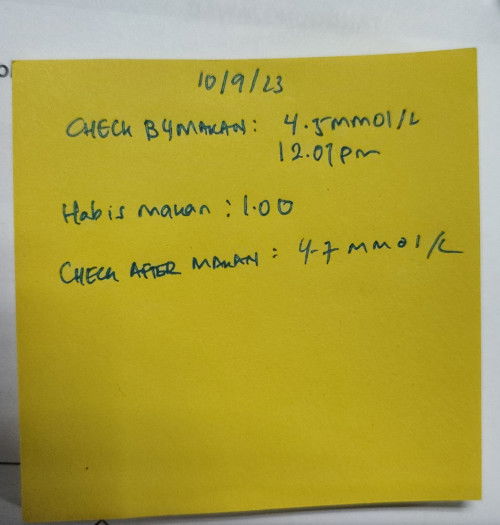 10/9/23
CHECK B4 MAKAN: 4.5 MMOl/L
12.07 pm
Habis makan : 1.00
CHECK AFTER MAKAN : 4.7 MMOl/L